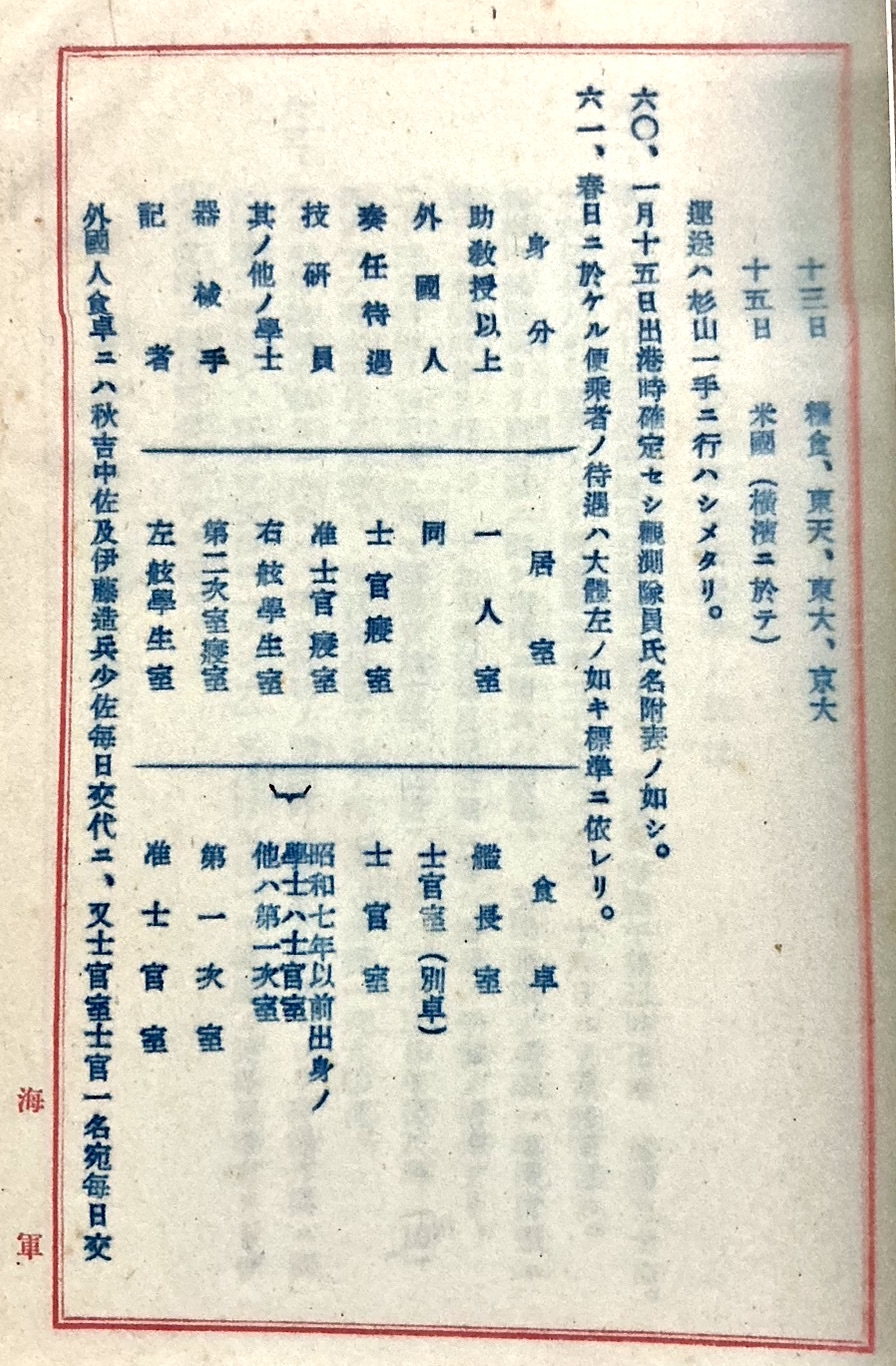 十三日　糧食、東天、東大、京大
十五日　米國（横濱ニ於テ）
運送ハ杉山一手ニ行ハシメタリ。
六〇、一月十五日出港時確定セシ觀測隊員氏名附表ノ如シ。
六一、春日ニ於ケル便乘者ノ待遇ハ大體左ノ如キ標準ニ依レリ。
身分　居室　食卓
助敎授以上　一人室　艦長室
外國人　同　士官室（別卓）
奏任待遇　士官寢室　士官室
技研員　准士官寢室　昭和七年以前出身ノ
學士ハ士官室
其ノ他ノ學士　右舷學生室　他ハ第一次室
器械手　第二次室寢室　第一次室
記者　左舷學生室　准士官室
外國人食卓ニハ秋吉中佐及伊藤造兵少佐每日交代ニ、又士官室士官一名宛每日交
海軍